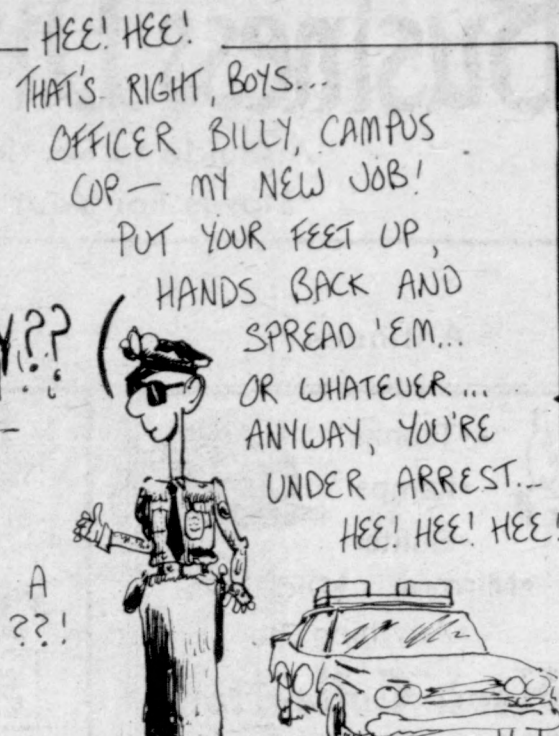 HEE! HEE!
THAT'S RIGHT, BOYS...
OFFICER BILLY, CAMPUS
COP— MY NEW JOB!
PUT YOUR FEET UP,
HANDS BACK AND
SPREAD 'EM...
OR WHATEVER...
ANYWAY, YOU'RE
UNDER ARREST...
HEE! HEE! HEE!
??
A
??!